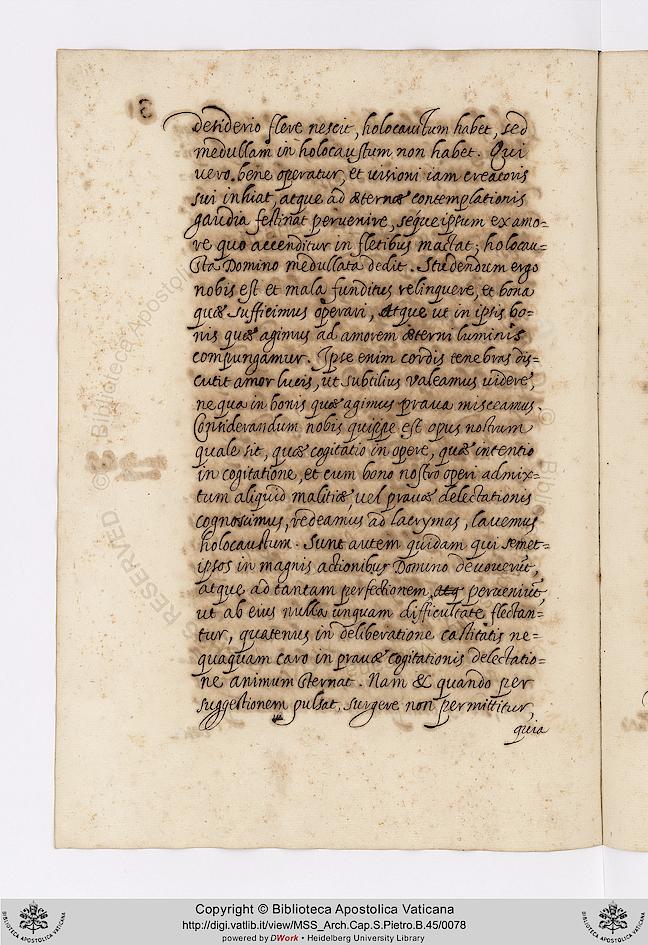 desiderio flere nescit, holocaustum habet, sed
medullam in holocaustum non habet. Qui
vero bene operatur, et visioni iam creatoris
sui inhiat, atque ad æternæ contemplationis
gaudia festinat pervenire, seque ipsum ex amo=
re quo accenditur in fletibus mactat; holocau=
sta Domino medullata dedit. Studendum ergo
nobis est et mala funditus relinquere, et bona
quæ sufficimus operari, atque ut in ipsis bo=
nis quæ agimus ad amorem æterni luminis
compungamur. Ipse enim cordis tenebras dis=
cutit amor lucis, ut subtilius valeamus videre,
ne qua in bonis quæ agimus prava misceamus.
Considerandum nobis quippe est opus nostrum
quale sit, quæ cogitatio in opere, quæ intentio
in cogitatione, et cum bono nostro operi admix=
tum aliquid malitiæ, vel pravæ delectationis
cognoscimus, redeamus ad lacrymas, lavemus
holocaustum. Sunt autem quidam qui semet=
ipsos in magnis actionibus Domino devoverūt,
atque ad tantam perfectionem atq pervenirūt,
ut ab eius nulla unquam difficultate flectan=
tur, quatenus in deliberatione castitatis ne=
quaquam caro in pravæ cogitationis delectatio=
ne animum sternat. Nam & quando per
suggestionem pulsat, surgere non permittitur,
quia
© Biblioteca Apostoli
RESERVED
Copyright © Biblioteca Apostolica Vaticana
http://digi.vatlib.it/view/MSS_Arch.Cap.S.Pietro.B.45/0078
powered by DWork • Heidelberg University Library